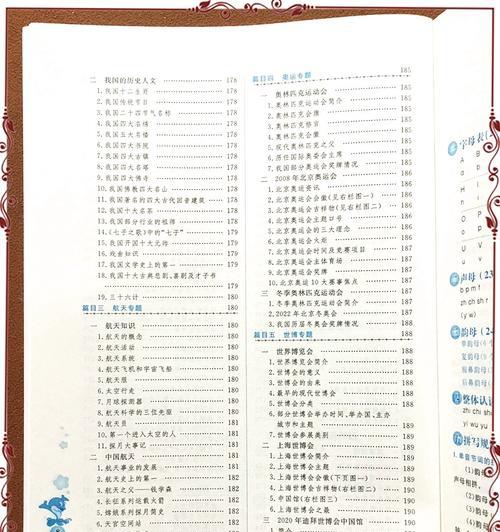 二 我国的历史人文 178
1.我国十二生肖 178
2.我国传统节日 178
3.我国二十四节气名称 178
4.我国四大名绣 178
5.我国五大名楼 178
6.我国四大书院 178
7.我国四大古镇 178
8.我国四大名塔 178
9.我国四大佛寺 178
10.我国佛教四大名山 178
11.我国著名的四大古代回音建筑 178
12.我国十大名茶 178
13.我国部分行业的祖师 178
14.《七子之歌》中的“七子” 179
15.我国历开国十大元帅 179
16.戏曲知识 179
17.我国文学史上的第一 179
18.我国十大古典悲剧、喜剧及才子书
179
19.三十六计 180
篇目三 航天专题 180
一 航天知识 180
1.航天的概念 180
2.航天活动 180
3.航天系统 180
4.航天飞机和宇宙飞船 180
5.航天服 180
6.太空行走 180
7.月球探测器 180
8.航天科学的三位先驱 180
9.航天员 181
10.第一个进入太空的人 181
11.探月大事记 181
二 中国航天 181
1.航天事业的发展 181
2.航天史上的第一 181
3.航天之父——钱学森 181
4.长征系列运载火箭 181
5.嫦娥系列探月简史
6.天宫空间站
篇目四 奥运专题 185
一 奥林匹克运动会 185
1.奥林匹克运动会简介 185
2.奥林匹克会旗 185
3.奥林匹克格言 185
4.奥林匹克会徽 185
5.现代奥林匹克之父 185
6.历任国际奥委会主席 185
7.我国部分奥运会奖牌情况 185
二 2008年北京奥运会 186
1.北京奥运资讯 186
2.北京奥运会会徽（见右栏图一） 186
3.北京奥运会吉祥物（见右栏图二） 186
4.北京奥运会主题口号 186
5.北京奥运会的三大理念 186
6.北京奥运会火炬 186
7.北京奥运会时间及竞赛项目 187
8.北京奥运会主体育场 187
9.北京奥运会奖牌 187
10.北京奥运10大赛事焦点 187
三 冬季奥林匹克运动会 187
1.冬季奥林匹克运动会简介 187
2.2022年北京冬奥会 187
3.我国历届冬奥会奖牌情况 188
篇目五 世博专题 188
一 世界博览会 188
1.世界博览会简介 188
2.世博会的意义 188
3.世博会的由来 188
4.最早的现代世博会 188
5.世博会分类 188
6.部分世博会举办时间、举办国、主办
城市和主题 188
7.世博会参展类别 189
二 上海世博会 189
1.上海世博会简介 189
2.上海世博会主题 189
3.上海世博会会徽（下页图一） 189
4.上海世博会吉祥物（右栏图二） 190
5.中国馆（右栏图三） 190
6.上海世博会之最 190
三 2020年迪拜世博会中国馆
字母表(2
A a
B b
H
O o
P
V
声母（23
b p m f
zh ch
韵母（2
单韵母(6
复韵母(9
后鼻韵母
整体认读
zhi chi shi
yi wu yu
拼写规
1.单音节词的
声母相拼，